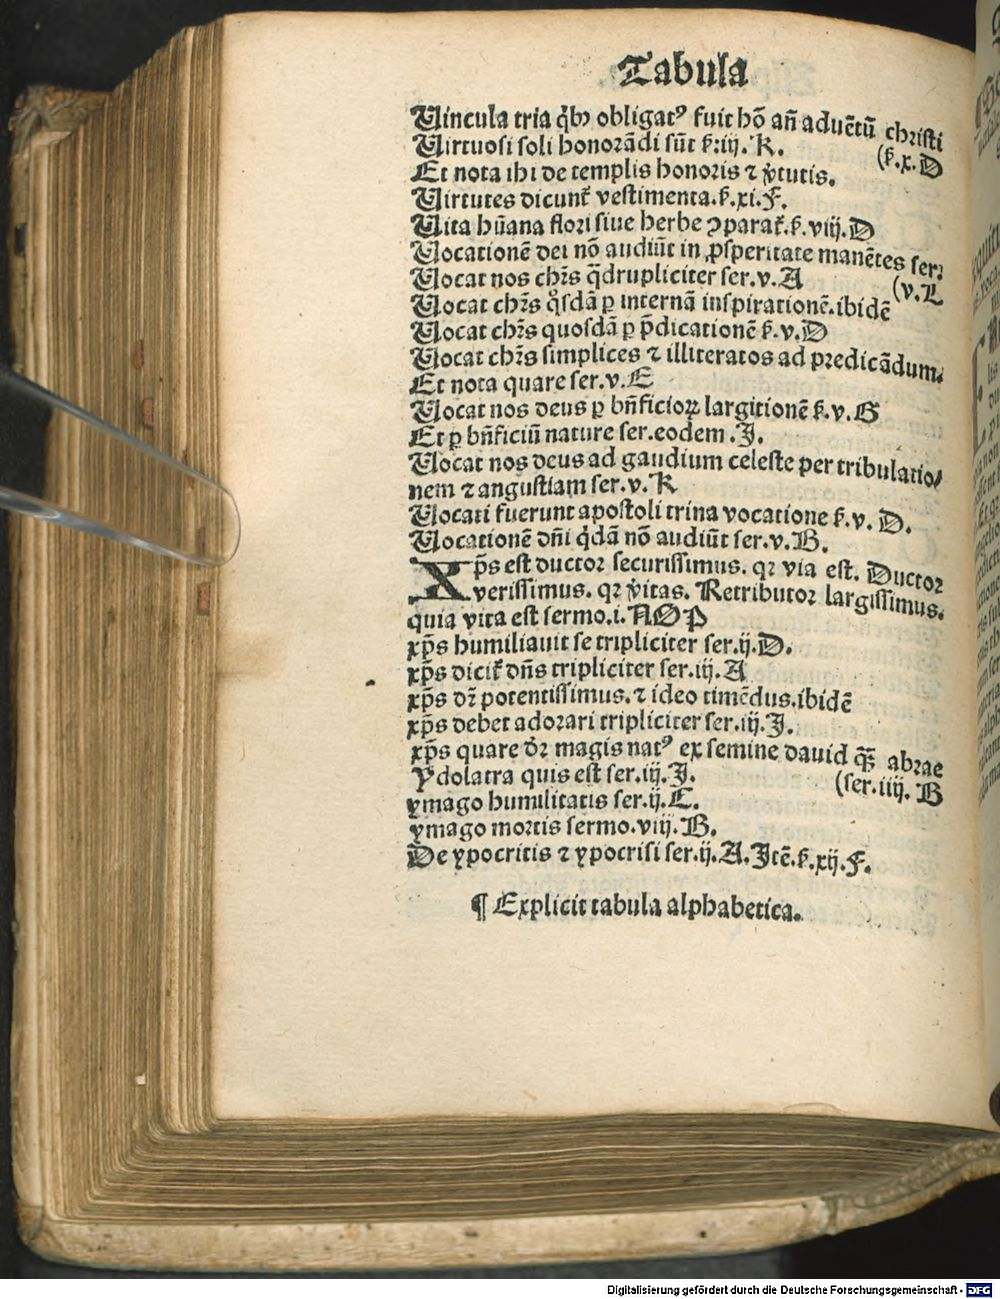 Tabula
Uincula tria q̇bꝰ obligatꝰ fuit hō añ aduētū christi
Uirtuosi soli honorādi sūt ẜ:iij.K. (ẜ.x.D
Et nota ibi de templis honoris ⁊ v̓tutis.
Uirtutes dicunt᷑ vestimenta.ẜ.xi.F.
Uita hūana flori siue herbe ꝯparat᷑.ẜ.viij.D
Uocationē dei nō audiūt in ꝓsperitate manētes ser.
Uocat nos chr̄s q̄drupliciter ser.v.A (v.L
Uocat chr̄s q̊sdā ꝑ internā inspirationē.ibidē
Uocat chr̄s quosdā ꝑ p̄dicationē ẜ.v.D
Uocat chr̄s simplices ⁊ illiteratos ad predicādum.
Et nota quare ser.v.E
Uocat nos deus ꝑ bn̄ficioꝝ largitionē ẜ.v.G
Et ꝑ bn̄ficiū nature ser.eodem.J.
Uocat nos deus ad gaudium celeste per tribulatio/
nem ⁊ angustiam ser.v.K
Uocati fuerunt apostoli trina vocatione ẜ.v.D.
Uocationē dn̄i q̇dā nō audiūt ser.v.B.
Xp̄s est ductor securissimus. qꝛ via est. Ductor
verissimus. qꝛ v̓itas. Retributor largissimus.
quia vita est sermo.i.NOP
xp̄s humiliauit se tripliciter ser.ij.D.
xp̄s dicit᷑ dn̄s tripliciter ser.iij.A
xp̄s dr̄ potentissimus.⁊ ideo timēdus.ibidē
xp̄s debet adorari tripliciter ser.iij.J.
xp̄s quare dr̄ magis natꝰ ex semine dauid q̄ꝫ abrae
Ydolatra quis est ser.iij.J. (ser.iiij.B
ymago humilitatis ser.ij.C.
ymago mortis sermo.viij.B.
De ypocritis ⁊ ypocrisi ser.ij.A.Jtē.ẜ.xij.F.
¶ Explicit tabula alphabetica.
Digitalisierung gefördert durch die Deutsche Forschungsgemeinschaft - DFG